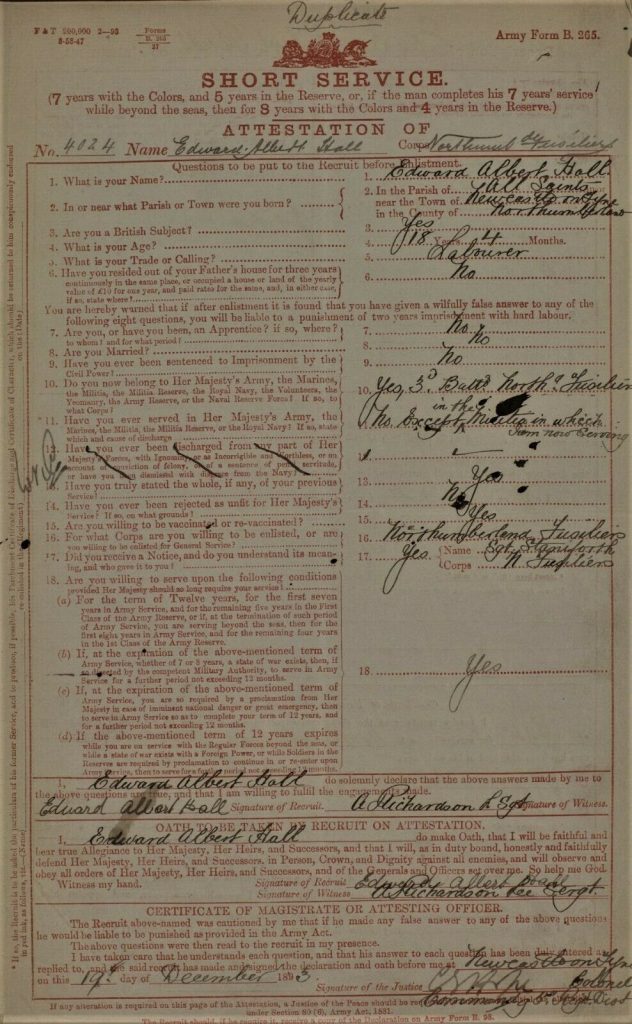 Duplicate
F & T 200,000 2—93
8-58-47
Forms
B. 265
37
Army Form B. 265.
SHORT SERVICE.
(7 years with the Colors, and 5 years in the Reserve, or, if the man completes his 7 years' service
while beyond the seas, then for 8 years with the Colors and 4 years in the Reserve.)
ATTESTATION OF
No. 4024 Name Edward Albert Hall Corps Northumbd Fusiliers
Questions to be put to the Recruit before Enlistment.
1. What is your Name? 1. Edward Albert Hall
2. In or near what Parish or Town were you born? 2. In the Parish of All Saints
near the Town of Newcastle on Tyne
in the County of Northumberland
3. Are you a British Subject? 3. Yes
4. What is your Age? 4. 18 Years 4 Months.
5. What is your Trade or Calling? 5. Labourer
6. Have you resided out of your Father's house for three years
continuously in the same place, or occupied a house or land of the yearly
value of £10 for one year, and paid rates for the same, and, in either case,
if so, state where? 6. No
You are hereby warned that if after enlistment it is found that you have given a wilfully false answer to any of the
following eight questions, you will be liable to a punishment of two years imprisonment with hard labour.
7. Are you, or have you been, an Apprentice? if so, where?
to whom? and for what period? 7. No
8. Are you Married? 8. No
9. Have you ever been sentenced to Imprisonment by the
Civil Power? 9. No
10. Do you now belong to Her Majesty's Army, the Marines,
the Militia, the Militia Reserve, the Royal Navy, the Volunteers, the
Yeomanry, the Army Reserve, or the Naval Reserve Force? If so, to
what Corps? 10. Yes, 3d Battn Northd Fusiliers
*11. Have you ever served in Her Majesty's Army, the
Marines, the Militia, the Militia Reserve, or the Royal Navy? If so, state
which and cause of discharge No. Except in the Militia in which
I am now Serving
12. Have you ever been discharged from any part of Her
Majesty's Forces, with Ignominy, or as Incorrigible and Worthless, or on
account of conviction of felony, or of a sentence of penal servitude,
or have you been dismissed with disgrace from the Navy?
13. Have you truly stated the whole, if any, of your previous
Service? 13. Yes
14. Have you ever been rejected as unfit for Her Majesty's
Service? If so, on what grounds? 14. No
15. Are you willing to be vaccinated or re-vaccinated? 15. Yes
16. For what Corps are you willing to be enlisted, or are
you willing to be enlisted for General Service? 16. Northumberland Fusiliers
17. Did you receive a Notice, and do you understand its mean-
ing, and who gave it to you? 17. Yes Name Sgt
Corps N. Fusiliers
18. Are you willing to serve upon the following conditions
provided Her Majesty should so long require your service?
(a) For the term of Twelve years, for the first seven
years in Army Service, and for the remaining five years in the First
Class of the Army Reserve, or if, at the termination of such period
of Army Service, you are serving beyond the seas, then for the
first eight years in Army Service, and for the remaining four years
in the 1st Class of the Army Reserve.
(b) If, at the expiration of the above-mentioned term of
Army Service, whether of 7 or 8 years, a state of war exists, then, if
so directed by the competent Military Authority, to serve in Army
Service for a further period not exceeding 12 months.
(c) If, at the expiration of the above-mentioned term of
Army Service, you are so required by a proclamation from Her
Majesty in case of imminent national danger or great emergency, then
to serve in Army Service so as to complete your term of 12 years, and
for a further period not exceeding 12 months.
(d) If the above-mentioned term of 12 years expires
while you are on service with the Regular Forces beyond the seas, or
while a state of war exists with a Foreign Power, or while Soldiers in the
Reserves are required by proclamation to continue in or re-enter upon
Army Service, then to serve for a further period not exceeding 12 months.
18. Yes
I, Edward Albert Hall do solemnly declare that the above answers made by me to
the above questions are true, and that I am willing to fulfil the engagements made.
Edward Albert Hall Signature of Recruit. A Richardson L Sgt Signature of Witness.
OATH TO BE TAKEN BY RECRUIT ON ATTESTATION.
I, Edward Albert Hall do make Oath, that I will be faithful and
bear true Allegiance to Her Majesty, Her Heirs, and Successors, and that I will, as in duty bound, honestly and faithfully
defend Her Majesty, Her Heirs, and Successors, in Person, Crown, and Dignity against all enemies, and will observe and
obey all orders of Her Majesty, Her Heirs, and Successors, and of the Generals and Officers set over me. So help me God.
Witness my hand. Signature of Recruit Edward Albert Hall
Signature of Witness A Richardson Lce Sergt
CERTIFICATE OF MAGISTRATE OR ATTESTING OFFICER.
The Recruit above-named was cautioned by me that if he made any false answer to any of the above questions
he would be liable to be punished as provided in the Army Act.
The above questions were then read to the recruit in my presence.
I have taken care that he understands each question, and that his answer to each question has been duly entered as
replied to, and the said recruit has made and signed the declaration and oath before me at Newcastle on Tyne
on this 19th day of December 1893.
Signature of the Justice Colonel
Commandg 5th Regt Dist
If any alteration is required on this page of the Attestation, a Justice of the Peace should be
under Section 80 (6), Army Act, 1881.
The Recruit should, if he require it, receive a copy of the Declaration on Army Form B. 93.